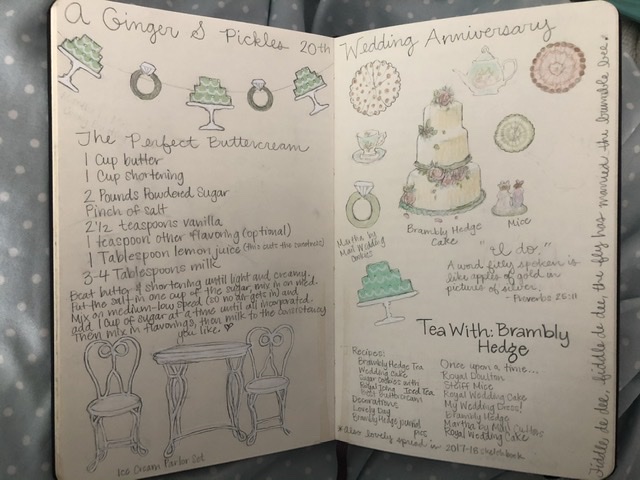 A Ginger & Pickles 20th Wedding Anniversary
The Perfect Buttercream
1 Cup butter
1 Cup shortening
2 Pounds Powdered Sugar
Pinch of salt
2 1/2 teaspoons vanilla
1 teaspoon other flavoring (optional)
1 Tablespoon lemon juice (this cuts the sweetness)
3-4 Tablespoons milk
Beat butter & shortening until light and creamy.
Put the salt in one cup of the sugar, mix in on med.
Mix on medium-low speed (so no air gets in) and
add 1 cup of sugar at a time until all incorporated.
Then mix in flavorings, then milk to the consistency
you like.
Ice Cream Parlor Set
Martha by
Mail Wedding
Cookies
Brambly Hedge
Cake
Mice
"I do."
A word fitly spoken is
like apples of gold in
pictures of silver.
- Proverbs 25:11
Tea With: Brambly
Hedge
Recipes:
Brambly Hedge Tea
Wedding Cake
Sugar Cookies with
Royal Icing Iced Tea
Best Buttercream
Decorations
Lovely Day
Brambly Hedge
Once upon a time...
Royal Doulton
Steiff Mice
Royal Wedding Cake
My Wedding Dress!
Brambly Hedge
Martha by Mail Cutters
Royal Wedding Cake
*Also lovely spread in 2017-18 sketchbook
Fiddle de dee, fiddle de dee, the fly has married the bumble bee.